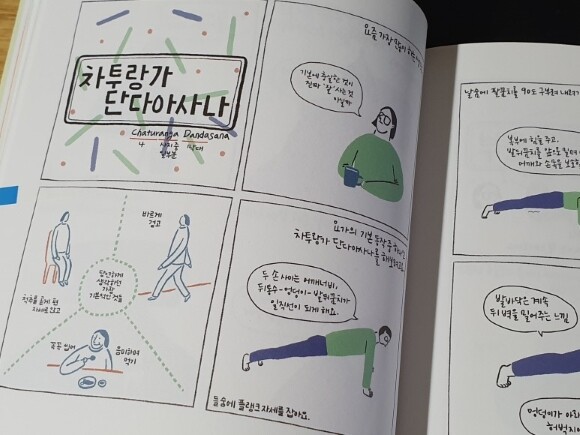 차투랑가
단다아사나
Chaturanga Dandasana
4 사지중 막대
일부분
요즘 가장 많이 하는
기본에 충실한 것이
진짜 '잘' 사는 것
아닐까
바르게
걷고
당연하게
생각하던
가장
기본적인 것들
척추를 곧게 편
자세로 앉고
꼭꼭 씹어
음미하며
먹기
요가의 기본 동작 중 하나인
차투랑가 단다아사나를 해보려고요
두 손 사이는 어깨너비,
뒤통수-엉덩이-발뒤꿈치가
일직선이 되게 해요.
들숨에 플랭크 자세를 잡아요.
날숨에 팔꿈치를 90도 구부리고 내려가
복부에 힘을 주고,
발뒤꿈치를 앞으로 밀며
어깨와 손목을 보호
발바닥은 계속
뒤 벽을 밀어주는 느낌
엉덩이가 아래
허벅지